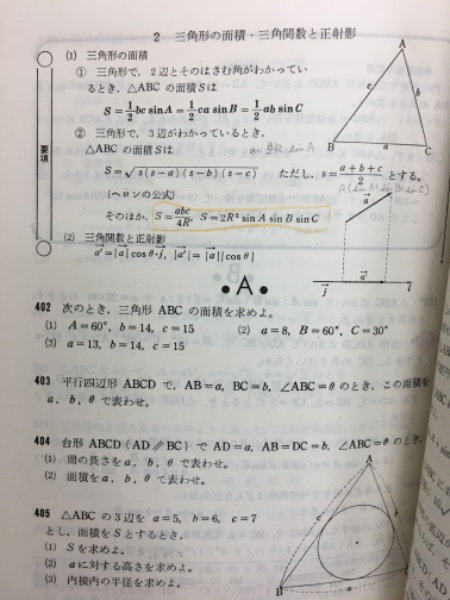 2 三角形の面積・三角関数と正射影
要項
(1) 三角形の面積
① 三角形で, 2辺とそのはさむ角がわかってい
るとき, △ABC の面積Sは
S=1/2 bc sin A=1/2 ca sin B=1/2 ab sin C
② 三角形で, 3辺がわかっているとき,
△ABC の面積Sは
S=√s(s-a)(s-b)(s-c) ただし, s=(a+b+c)/2 とする。
(ヘロンの公式)
そのほか, S=abc/4R, S=2R² sin A sin B sin C
(2) 三角関数と正射影
a⃗'=|a⃗|cosθ・j⃗, |a⃗'|=|a⃗||cosθ|
A
c
b
B
a
C
a⃗
j⃗
a⃗'
●A●
402 次のとき, 三角形 ABC の面積を求めよ。
(1) A=60°, b=14, c=15 (2) a=8, B=60°, C=30°
(3) a=13, b=14, c=15
403 平行四辺形 ABCD で, AB=a, BC=b, ∠ABC=θ のとき, この面積を
a, b, θ で表わせ。
404 台形 ABCD (AD∥BC) で AD=a, AB=DC=b, ∠ABC=θ のとき,
(1) 周の長さを a, b, θ で表わせ。
(2) 面積を a, b, θ で表わせ。
405 △ABC の3辺を a=5, b=6, c=7
とし, 面積をSとするとき,
(1) S を求めよ。
(2) a に対する高さを求めよ。
(3) 内接円の半径を求めよ。
A
c
b
B
a